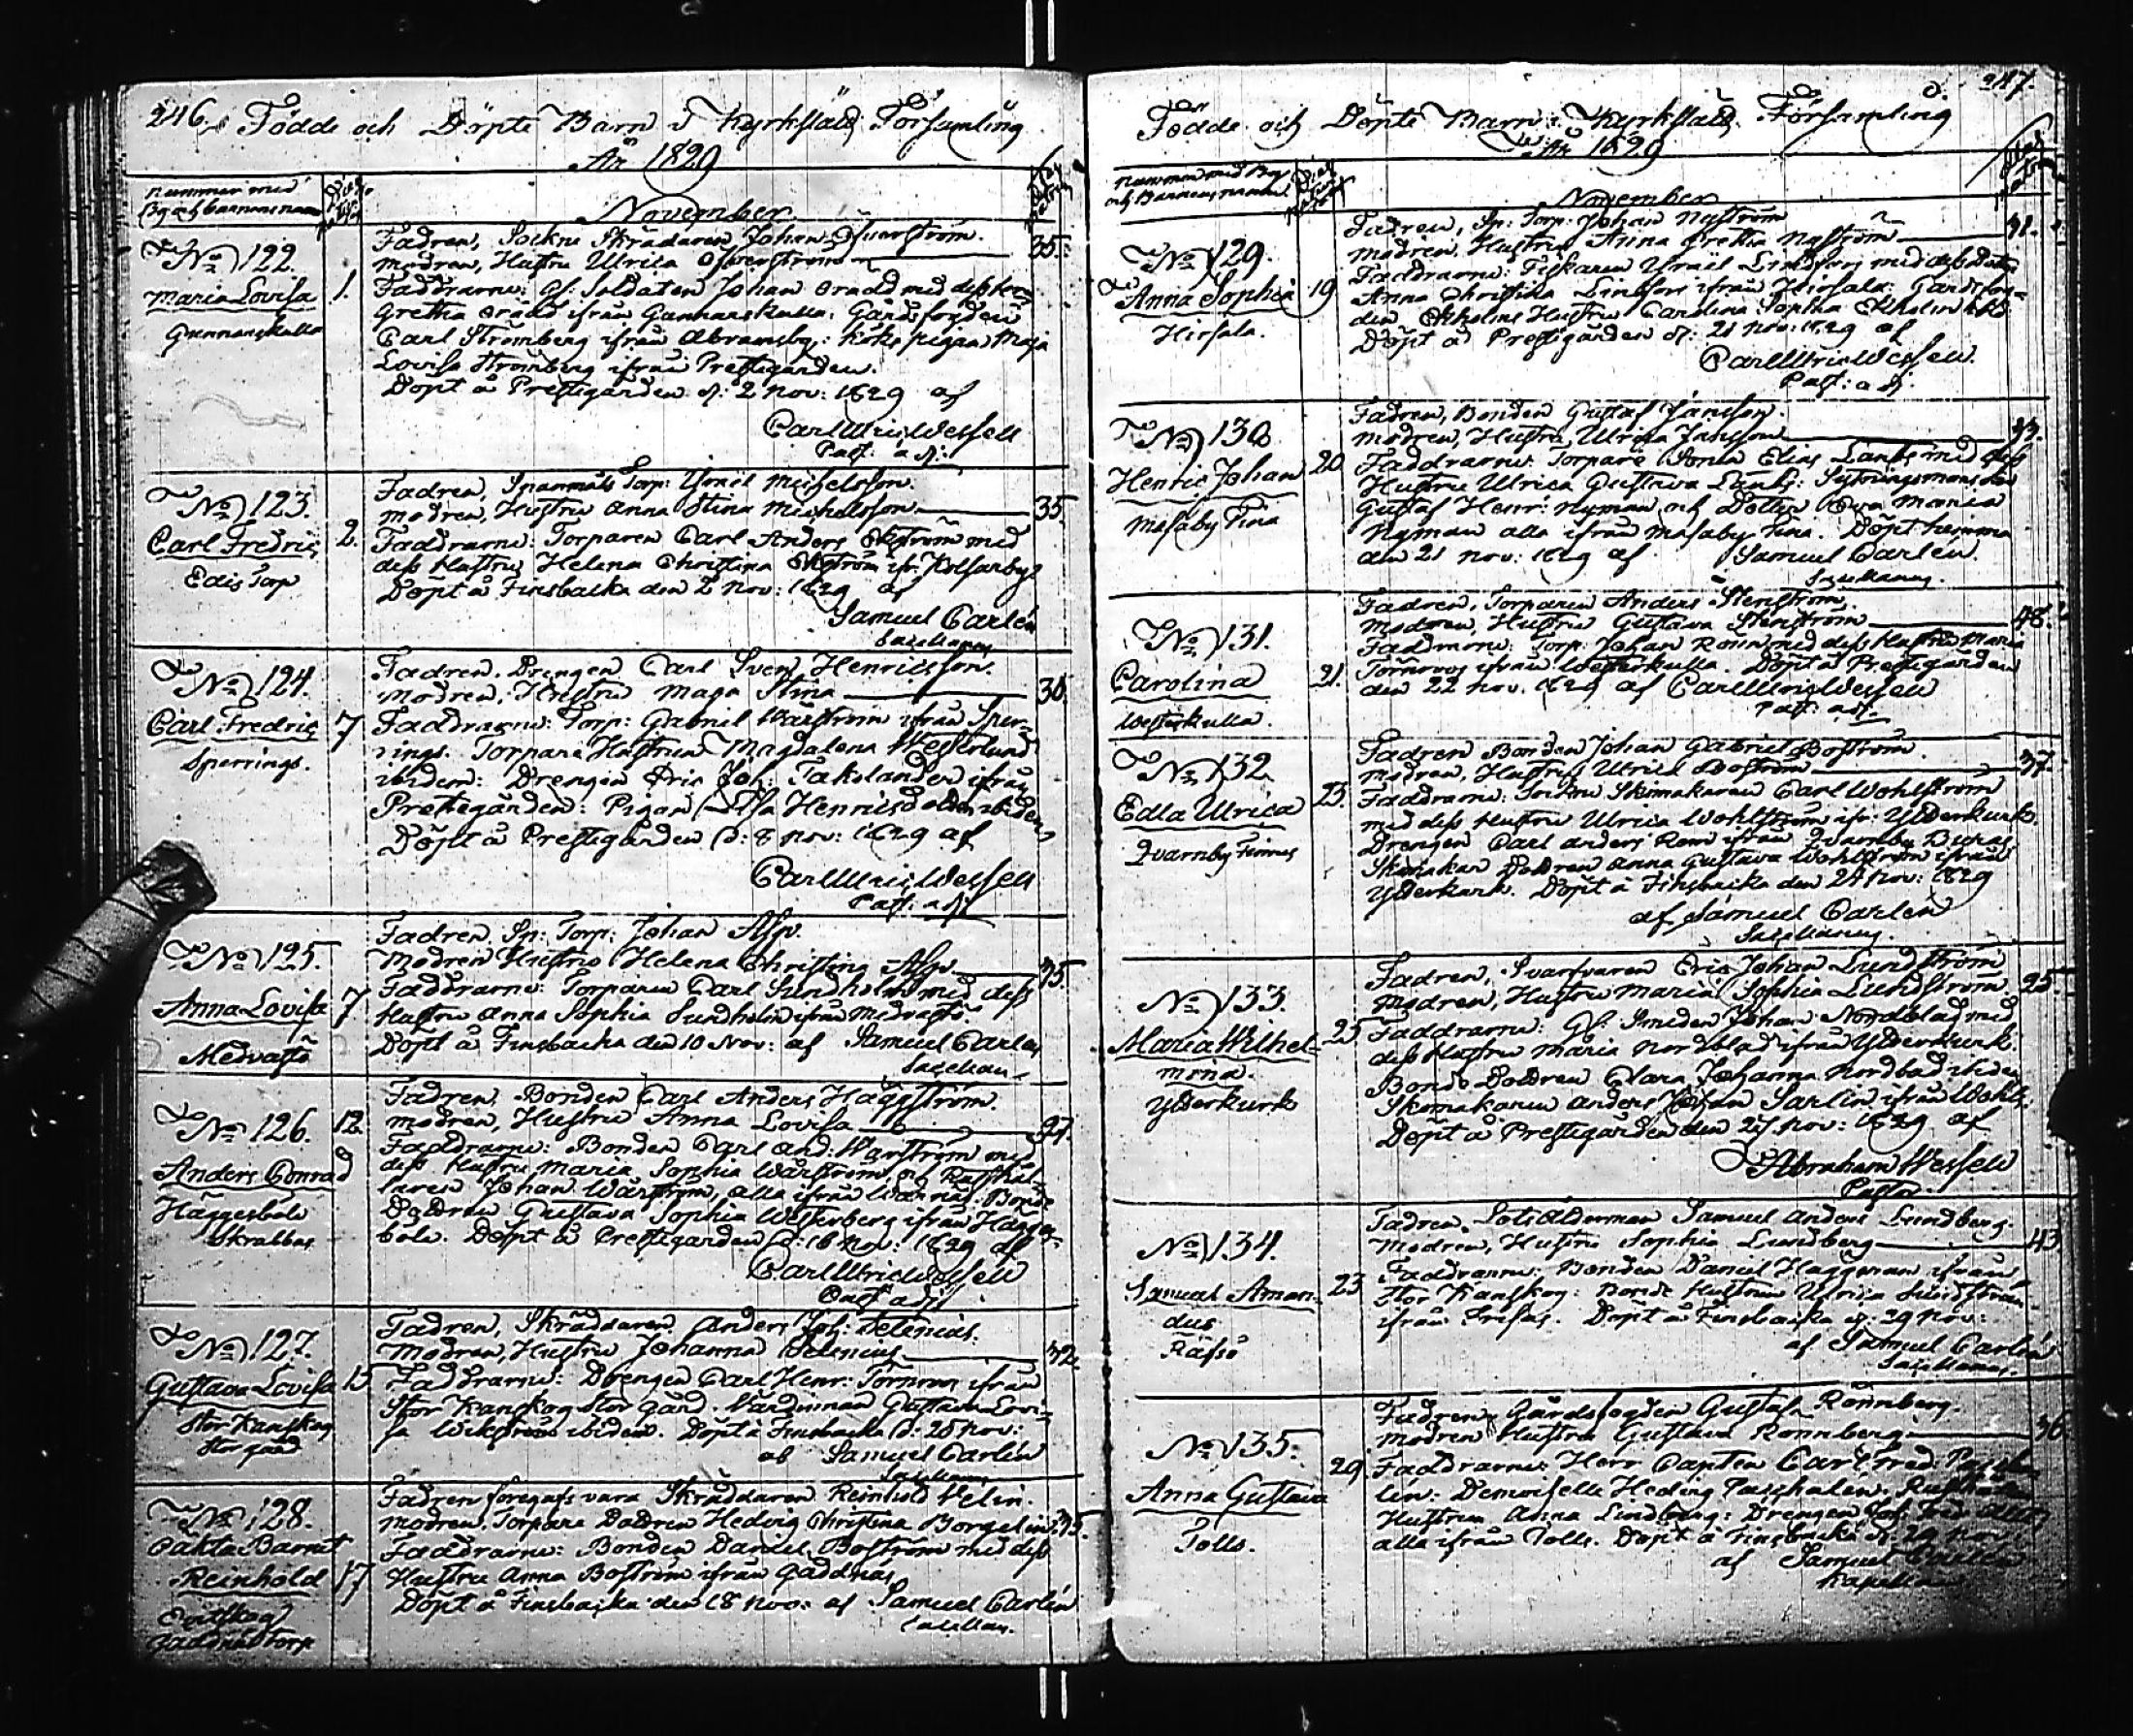 246. Födde och Döpte Barn i Kyrkslätt Församling
År 1829
nummer med
November
No 122.
Maria Lovisa
Gunnarskulla
1.
Fadren, Sockne Skrädaren Johan
modren, Hustru Ulrica 35.
Faddrarne: Soldaten Johan med dess
Gretha ifrån Gunnarskulla: Gårdsfogden
Carl Strömberg ifrån Abramsby: Köks pigan Maja
Lovisa Strömberg ifrån Prestegården.
Döpt å Prestegården d: 2 nov: 1829 af
Carl Ulric Wessell
Past: adj:
No 123.
Carl Fredric
Edis Torp
2.
Fadren, Spanmåls Torp: Israel Michelsson.
modren, Hustru Anna Stina Michelsson 35.
Faddrarne: Torparen Carl Anders Ekström med
dess Hustru Helena Christina Ekström ifr: Kolsarby
Döpt å Finsbacka den 2 Nov: 1829 af
Samuel Carlén
No 124.
Carl Fredric
Sperrings.
7
Fadren, Drengen Carl Sven Henricsson.
modren, Hustru Maja Stina 30.
Faddrarne: Torp: Gabriel Wärström ifrån Sper-
rings. Torpare Hustrun Magdalena Westerlund
ibidem: Drengen Eric Joh: Takolander ifrån
Prestegården: Pigan Henrics ibidem
Döpt å Prestegården d: 8 nov: 1829 af
Carl Ulric Wessell
Past: adj
No 125.
Anna Lovisa
Medvastö
7
Fadren, Sp: Torp: Johan Alfv.
Modren Hustru Helena Christina Alfv 35.
Faddrarne: Torparen Carl Sundholm med dess
Hustru Anna Sophia Sundholm ifrån Medvastö
Döpt å Finsbacka den 10 Nov: af Samuel Carlén
No 126.
Anders Conrad
Häggesböle
Skrabbas
12.
Fadren, Bonden Carl Anders Häggström.
modren, Hustru Anna Lovisa 27.
Faddrarne: Bonden Carl And: Warström med
dess Hustru Maria Sophia Wärström, och Rusthål-
laren Johan Wärström, alla ifrån Wärnäs: Bonde
Dottren Gustava Sophia Westerberg ifrån Hägges-
böle. Döpt å Prestegården d: 16 Nov: 1829 af
Carl Ulric Wessell
Past adj
No 127.
Gustava Lovisa
Stor Kanskog
Stor gård
15
Fadren, Skräddaren Anders Joh: Selenius.
Modren, Hustru Johanna Selenius 32.
Faddrarne: Drengen Carl Henr: Törnroos ifrån
Stor Kanskog Stor gård. Värdinnan Gustava Lovi-
sa Wikström ibidem. Döpt å Finsbacka d: 25 nov:
af Samuel Carlén
No 128.
Oäkta Barnet
Reinhold
Torp
17
Fadren föregafs vara Skräddaren Reinhold Velin.
modren, Torpare Dottren Hedvig Christina Borgelin 35.
Faddrarne: Bonden Daniel Boström med dess
Hustru Anna Boström ifrån Gäddnäs
Döpt å Finsbacka den 18 Nov: af Samuel Carlén
247.
Födde och Döpte Barn i Kyrkslätt Församling
År 1829
November
No 129.
Anna Sophia
Hirsala.
19
Fadren, Sp: Torp: Johan Nyström
modren, Hustru Anna Gretha Nyström 31.
Faddrarne: Fiskaren Israël Lindfors med dess Dotter
Anna Christina Lindfors ifrån Hirsala: Gårdsfog-
den Ekholms Hustru Carolina Sophia Ekholm
Döpt å Prestegården d: 21 nov: 1829 af
Carl Ulric Wessell.
Past: adj.
No 130
Henric Johan
Masaby Fina
20
Fadren, Bonden Gustaf Jansson.
modren, Hustru Ulrica Jansson
Faddrarne: Torpare Sonen Elias Länk med dess
Hustru Ulrica Gustava Länk: Sytningsmannen
Gustaf Henr: Nyman och Dotter Eva Maria
Nyman alla ifrån Masaby Fina. Döpt hemma
den 21 nov: 1829 af Samuel Carlén.
No 131.
Carolina
Westerkulla.
21.
Fadren, Torparen Anders Stenström.
modren, Hustru Gustava Stenström 48.
Faddrarne: Torp: Johan Roin med dess Hustru Maria
Törnroos ifrån Westerkulla. Döpt å Prestegården
den 22 nov: 1829 af Carl Ulric Wessell
Past: adj.
No 132
Edla Ulrica
Qvarnby Finnes
23.
Fadren Bonden Johan Gabriel Boström.
modren, Hustru Ulrica Boström 37.
Faddrarne: Sockne Skomakaren Carl Wohlström
med dess Hustru Ulrica Wohlström ifr: Ytterkurk.
Drengen Carl Anders Rom ifrån Qvarnby
Skomakar Dottren Anna Gustava Wohlström ifrån
Ytterkurk. Döpt å Finsbacka den 24 nov: 1829
af Samuel Carlén
No 133.
Maria Wilhel-
mina.
Ytterkurk
25
Fadren, Svarfvaren Eric Johan Lundström
Modren, Hustru Maria Sophia Lundström 25.
Faddrarne: Smeden Johan Nordblad med
dess Hustru Maria Nordblad ifrån Ytterkurk.
Bonde Dottren Clara Johanna Nordblad ibidem
Skomakaren Anders Johan Sarlin ifrån Wohls.
Döpt å Prestegården den 27 nov: 1829 af
Abraham Wessell
Pastor.
No 134.
Samuel Aman-
dus
Räfsö
23
Fadren, Lots Ålderman Samuel Anders Lundberg.
Modren, Hustru Sophia Lundberg 43.
Faddrarne: Bonden Daniel Häggman ifrån
Stor Kanskog: Bonde Hustrun Ulrica Lindström
ifrån Döpt å Finsbacka d: 29 nov:
af Samuel Carlén
No 135.
Anna Gustava
Tolls.
29
Fadren, Gårdsfogden Gustaf Rönnberg.
modren Hustru Gustava Rönnberg 36
Faddrarne: Herr Capten Carl Fred:
lin: Demoiselle Hedvig
Hustrun Anna Lindberg: Drengen Joh: Fred
alla ifrån Tolls. Döpt å Finsbacka d: 29 nov:
af Samuel Carlén
Kapellan.